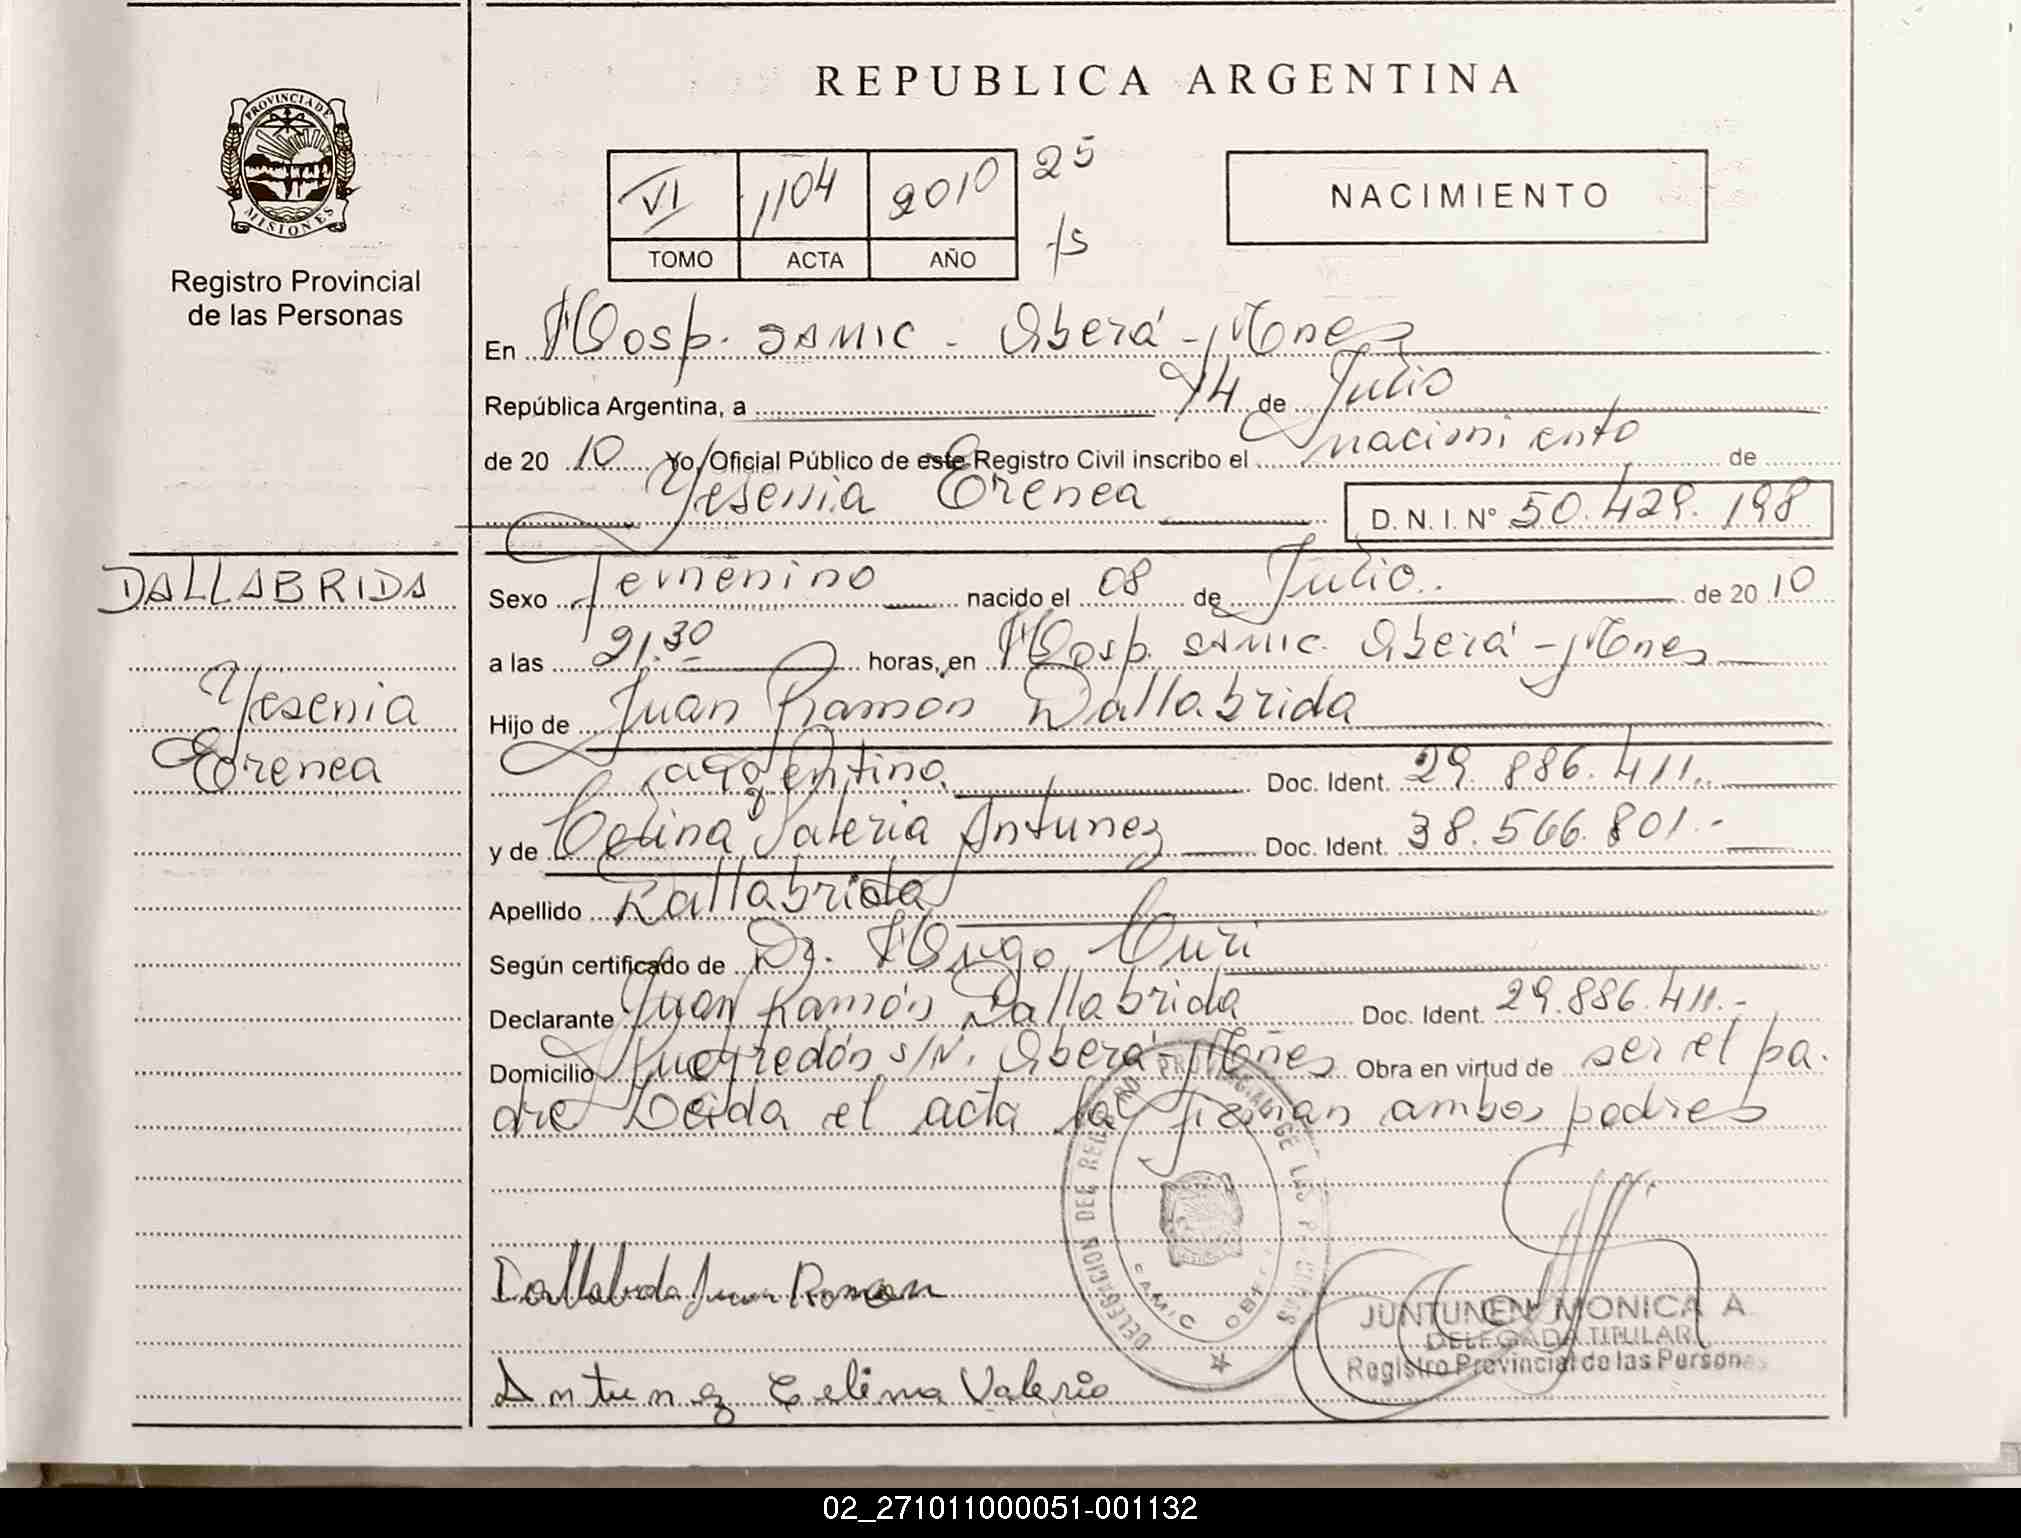 REPUBLICA ARGENTINA
PROVINCIA DE
MISIONES
Registro Provincial
de las Personas
VI 1104 2010 25
TOMO ACTA AÑO 15
NACIMIENTO
En Hosp. SAMIC - Oberá - Mnes
República Argentina, a 14 de Julio
de 2010 Yo, Oficial Público de este Registro Civil inscribo el nacimiento de
Yesenia Erenea D. N. I. N° 50.429.198
DALLABRIDA
Yesenia
Erenea
Sexo femenino nacido el 08 de Julio.. de 2010
a las 21.30 horas, en Hosp. SAMIC. Oberá - Mnes
Hijo de Juan Ramón Dallabrida
argentino. Doc. Ident. 29.886.411..
y de Celina Valeria Antunez Doc. Ident. 38.566.801.-
Apellido Dallabrida
Según certificado de Dr. Hugo Curi
Declarante Juan Ramón Dallabrida Doc. Ident. 29.886.411.-
Domicilio Pueyrredón S/N. Oberá - Mnes Obra en virtud de ser el pa.
dre Leida el acta la firman ambos padres
DELEGACION DEL REGISTRO PROVINCIAL DE LAS PERSONAS
SAMIC OBERA
Dallabrida Juan Ramon
Antunez Celina Valeria
JUNTUNEN MONICA A
DELEGADA TITULAR
Registro Provincial de las Personas
02_271011000051-001132